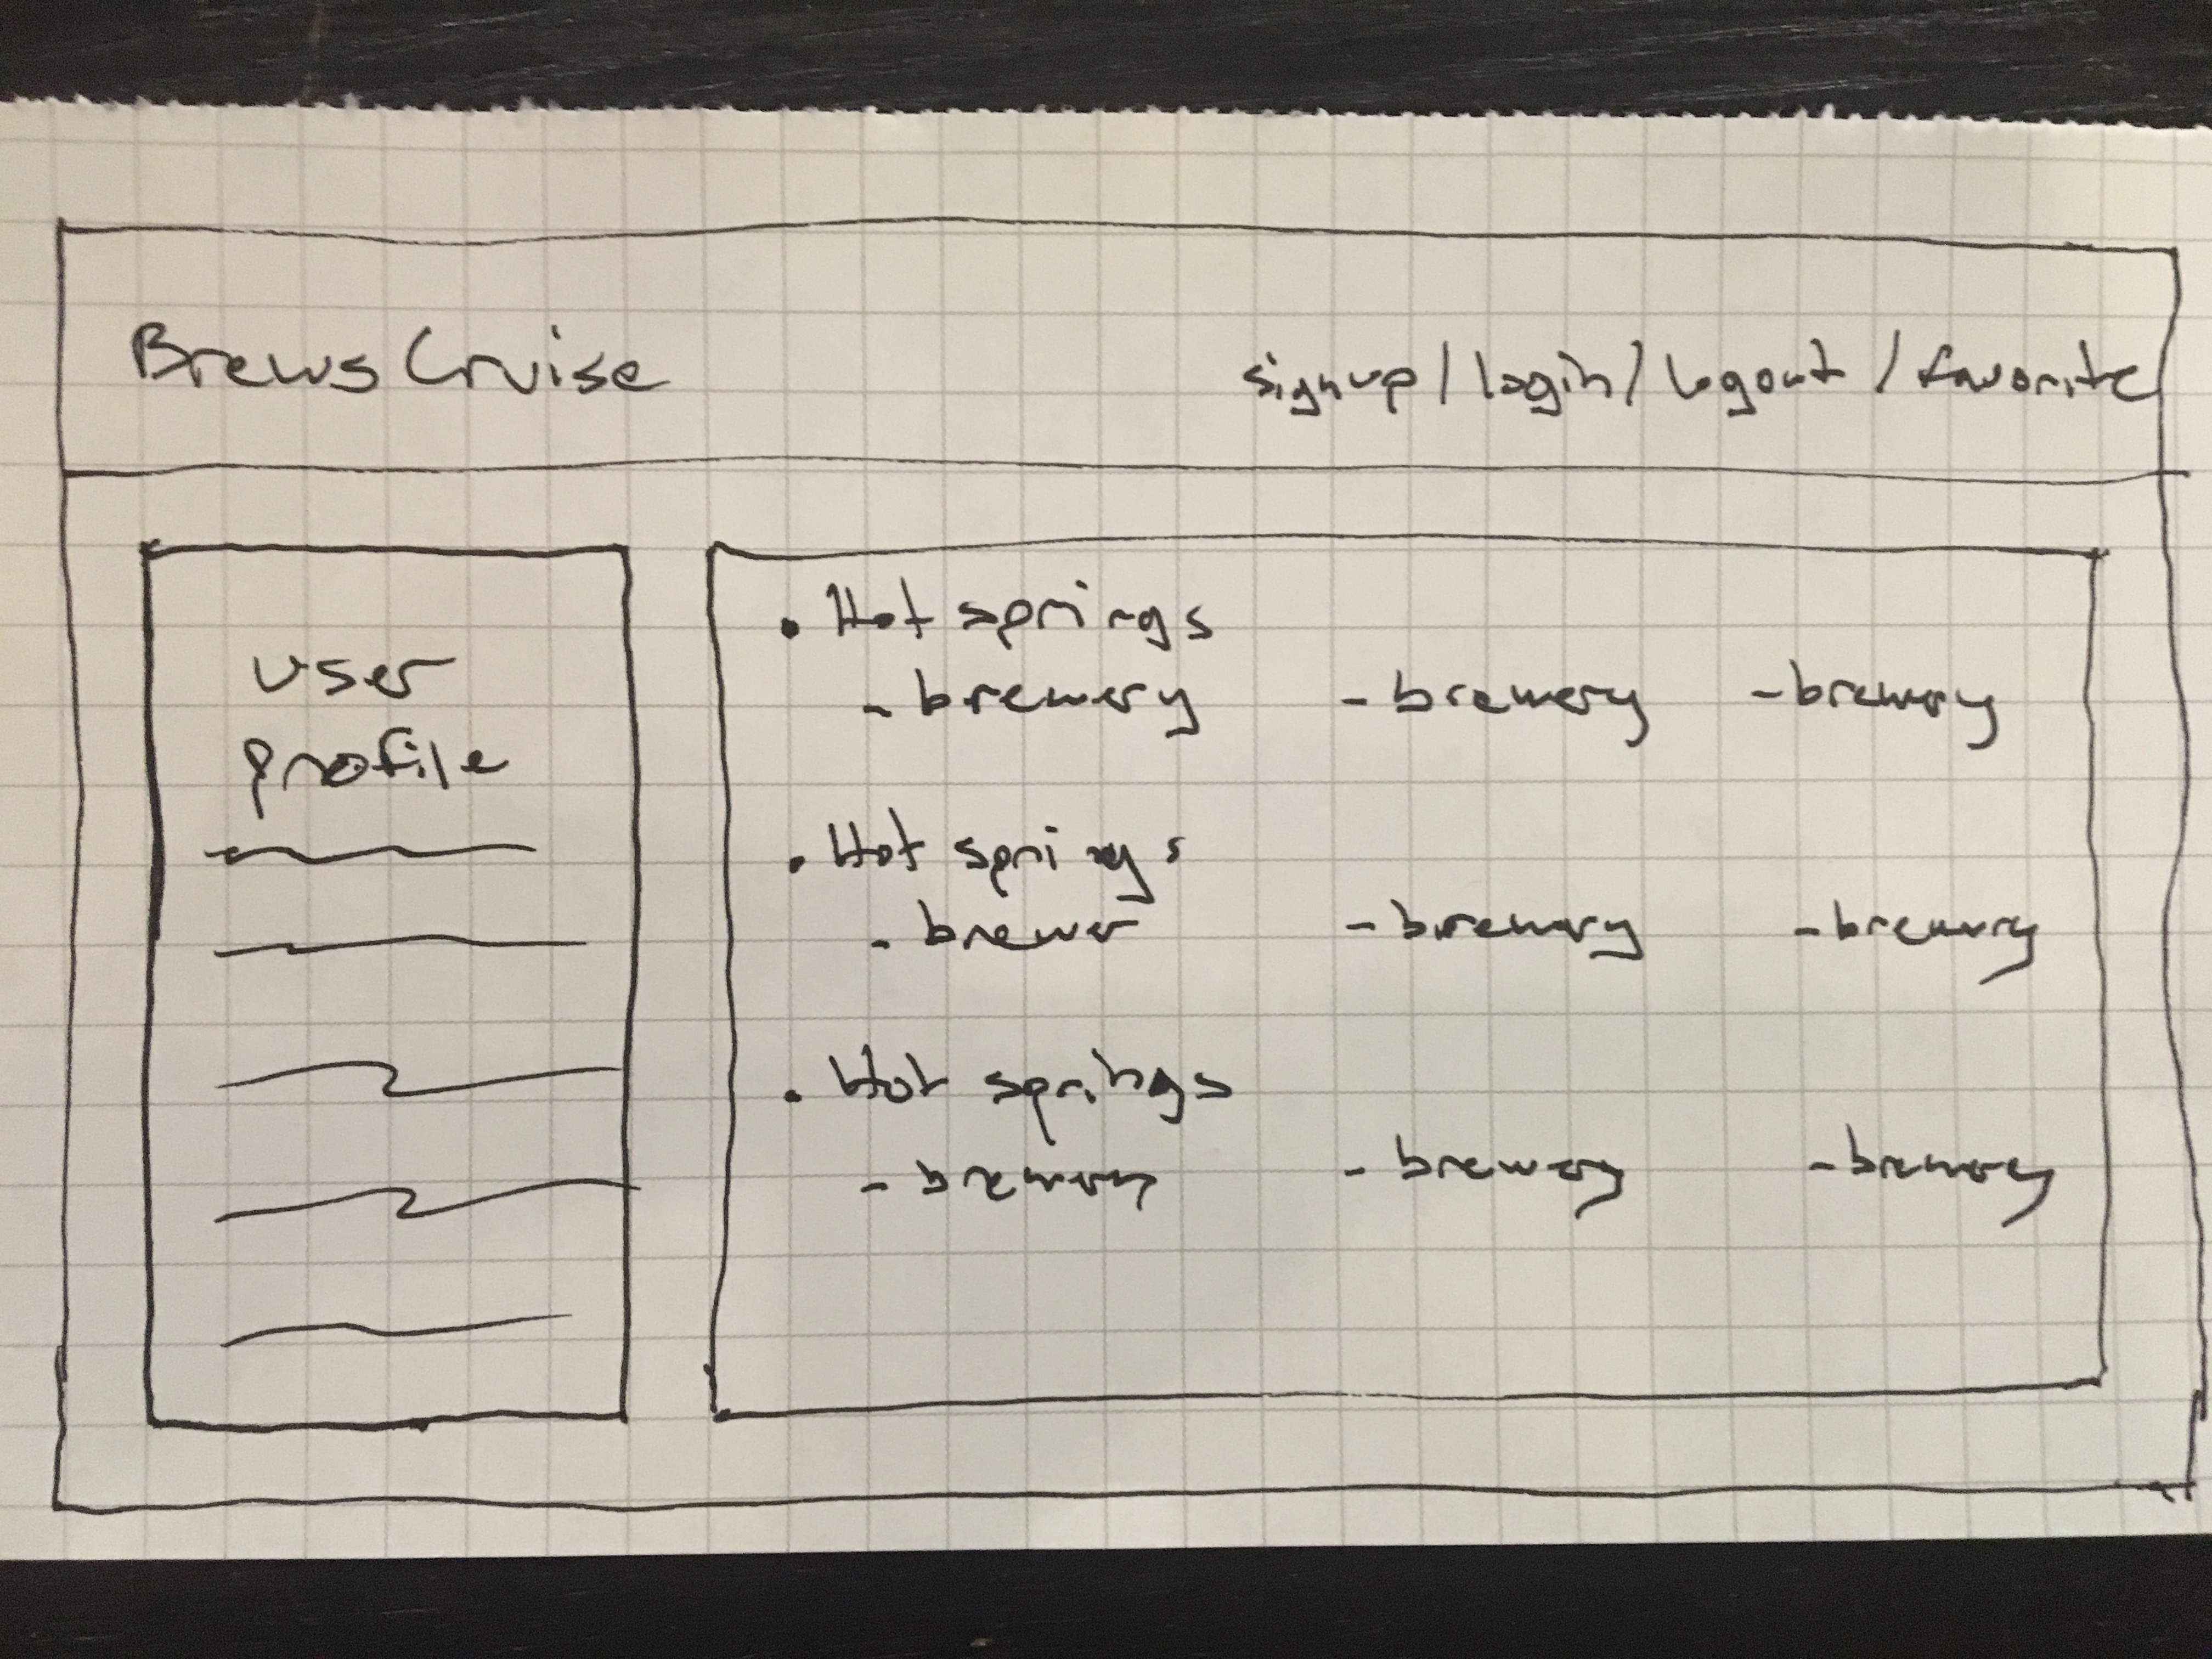 Brews Cruise
signup / login / logout / favorite
User
profile
• Hot springs
- brewery - brewery - brewery
• Hot springs
- brewer - brewery - brewery
• Hot springs
- brewery - brewery - brewery